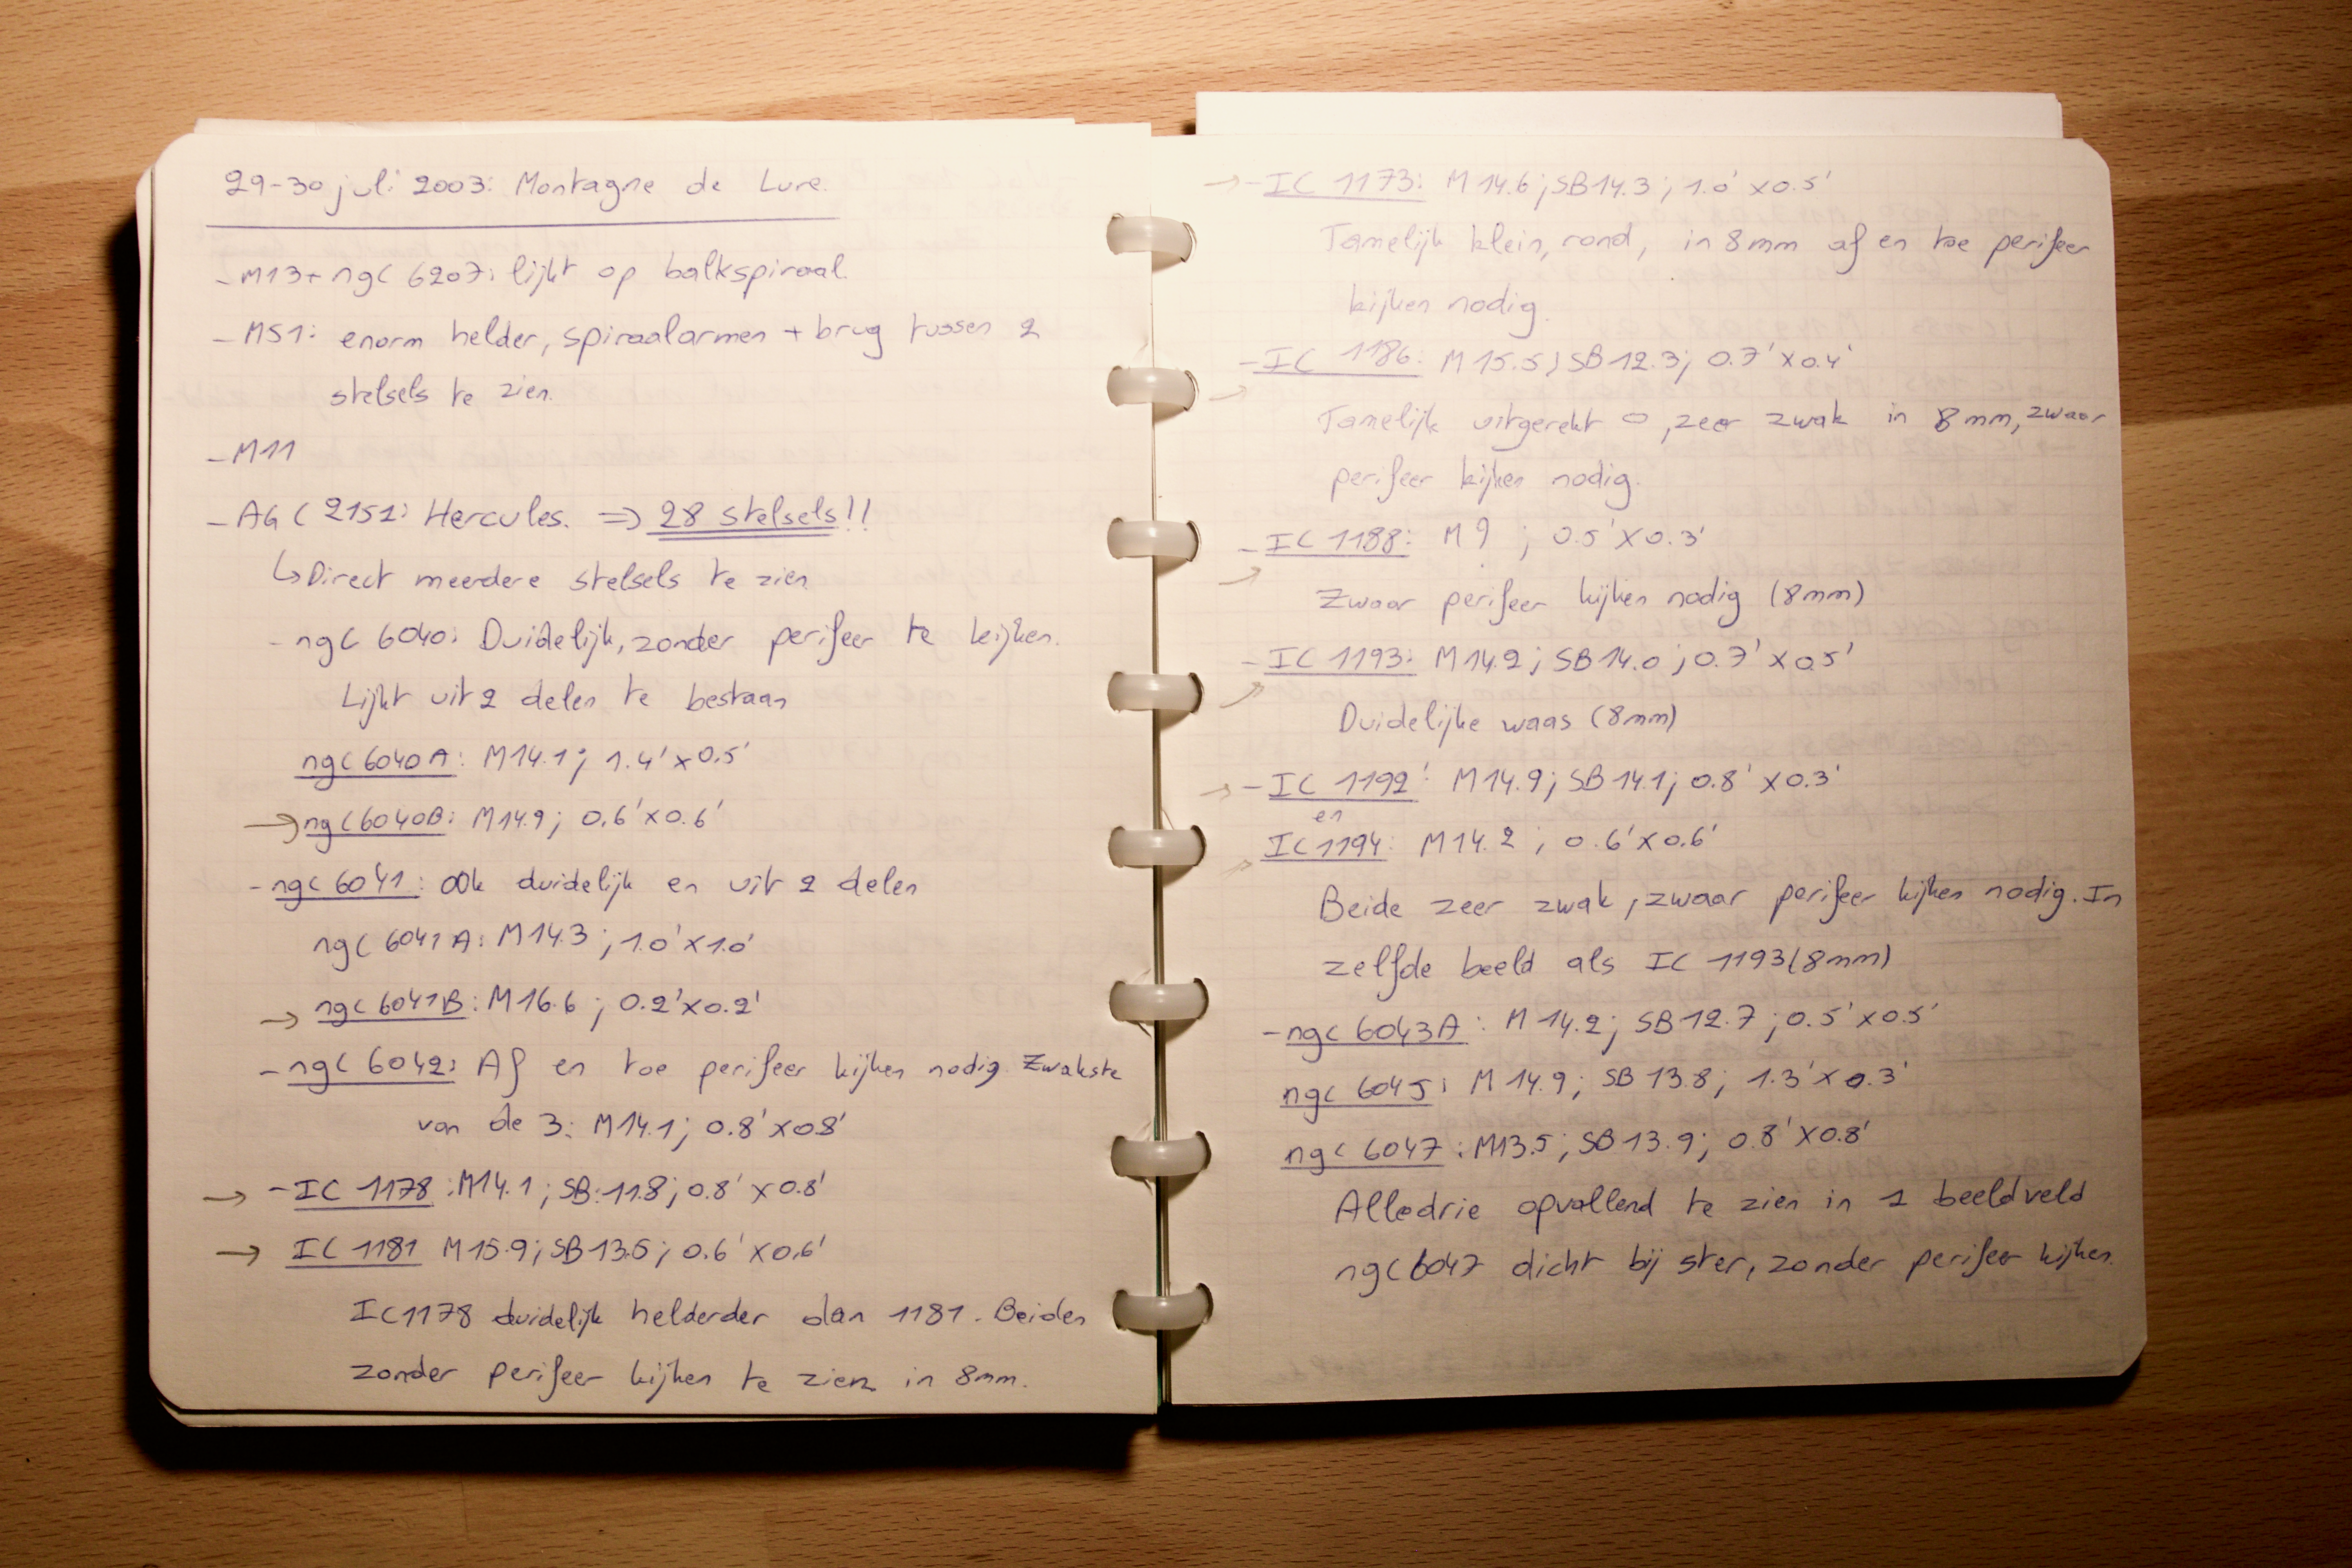 29-30 juli 2003: Montagne de Lure.
- M13 + ngc 6207: lijkt op balkspiraal.
- M51: enorm helder, spiraalarmen + brug tussen 2
stelsels te zien.
- M11
- AGC 2151: Hercules. => 28 stelsels!!
↳ Direct meerdere stelsels te zien
- ngc 6040: Duidelijk, zonder perifeer te kijken.
Lijkt uit 2 delen te bestaan
ngc 6040A: M14.1; 1.4' x 0.5'
→ ngc 6040B: M14.9; 0.6' x 0.6'
- ngc 6041: ook duidelijk en uit 2 delen
ngc 6041A: M14.3; 1.0' x 1.0'
→ ngc 6041B: M16.6; 0.2' x 0.2'
- ngc 6042: Af en toe perifeer kijken nodig. Zwakste
van de 3: M14.1; 0.8' x 0.8'
→ - IC 1178: M14.1; SB: 11.8; 0.8' x 0.8'
→ IC 1181 M15.9; SB13.5; 0.6' x 0.6'
IC1178 duidelijk helderder dan 1181. Beiden
zonder perifeer kijken te zien in 8mm.
→ - IC 1173: M14.6; SB14.3; 1.0' x 0.5'
Tamelijk klein, rond, in 8mm af en toe perifeer
kijken nodig.
→ - IC 1186: M15.5; SB12.3; 0.7' x 0.4'
Tamelijk uitgerekt 0, zeer zwak in 8mm, zwaar
perifeer kijken nodig.
→ - IC 1188: M?; 0.5' x 0.3'
Zwaar perifeer kijken nodig (8mm)
→ - IC 1193: M14.2; SB14.0; 0.7' x 0.5'
Duidelijke waas (8mm)
→ - IC 1192: M14.9; SB14.1; 0.8' x 0.3'
en
→ IC 1194: M14.2; 0.6' x 0.6'
Beide zeer zwak, zwaar perifeer kijken nodig. In
zelfde beeld als IC 1193 (8mm)
- ngc 6043A: M14.2; SB12.7; 0.5' x 0.5'
ngc 6045: M14.9; SB13.8; 1.3' x 0.3'
ngc 6047: M13.5; SB13.9; 0.8' x 0.8'
Alledrie opvallend te zien in 1 beeldveld
ngc 6047 dicht bij ster, zonder perifeer kijken.